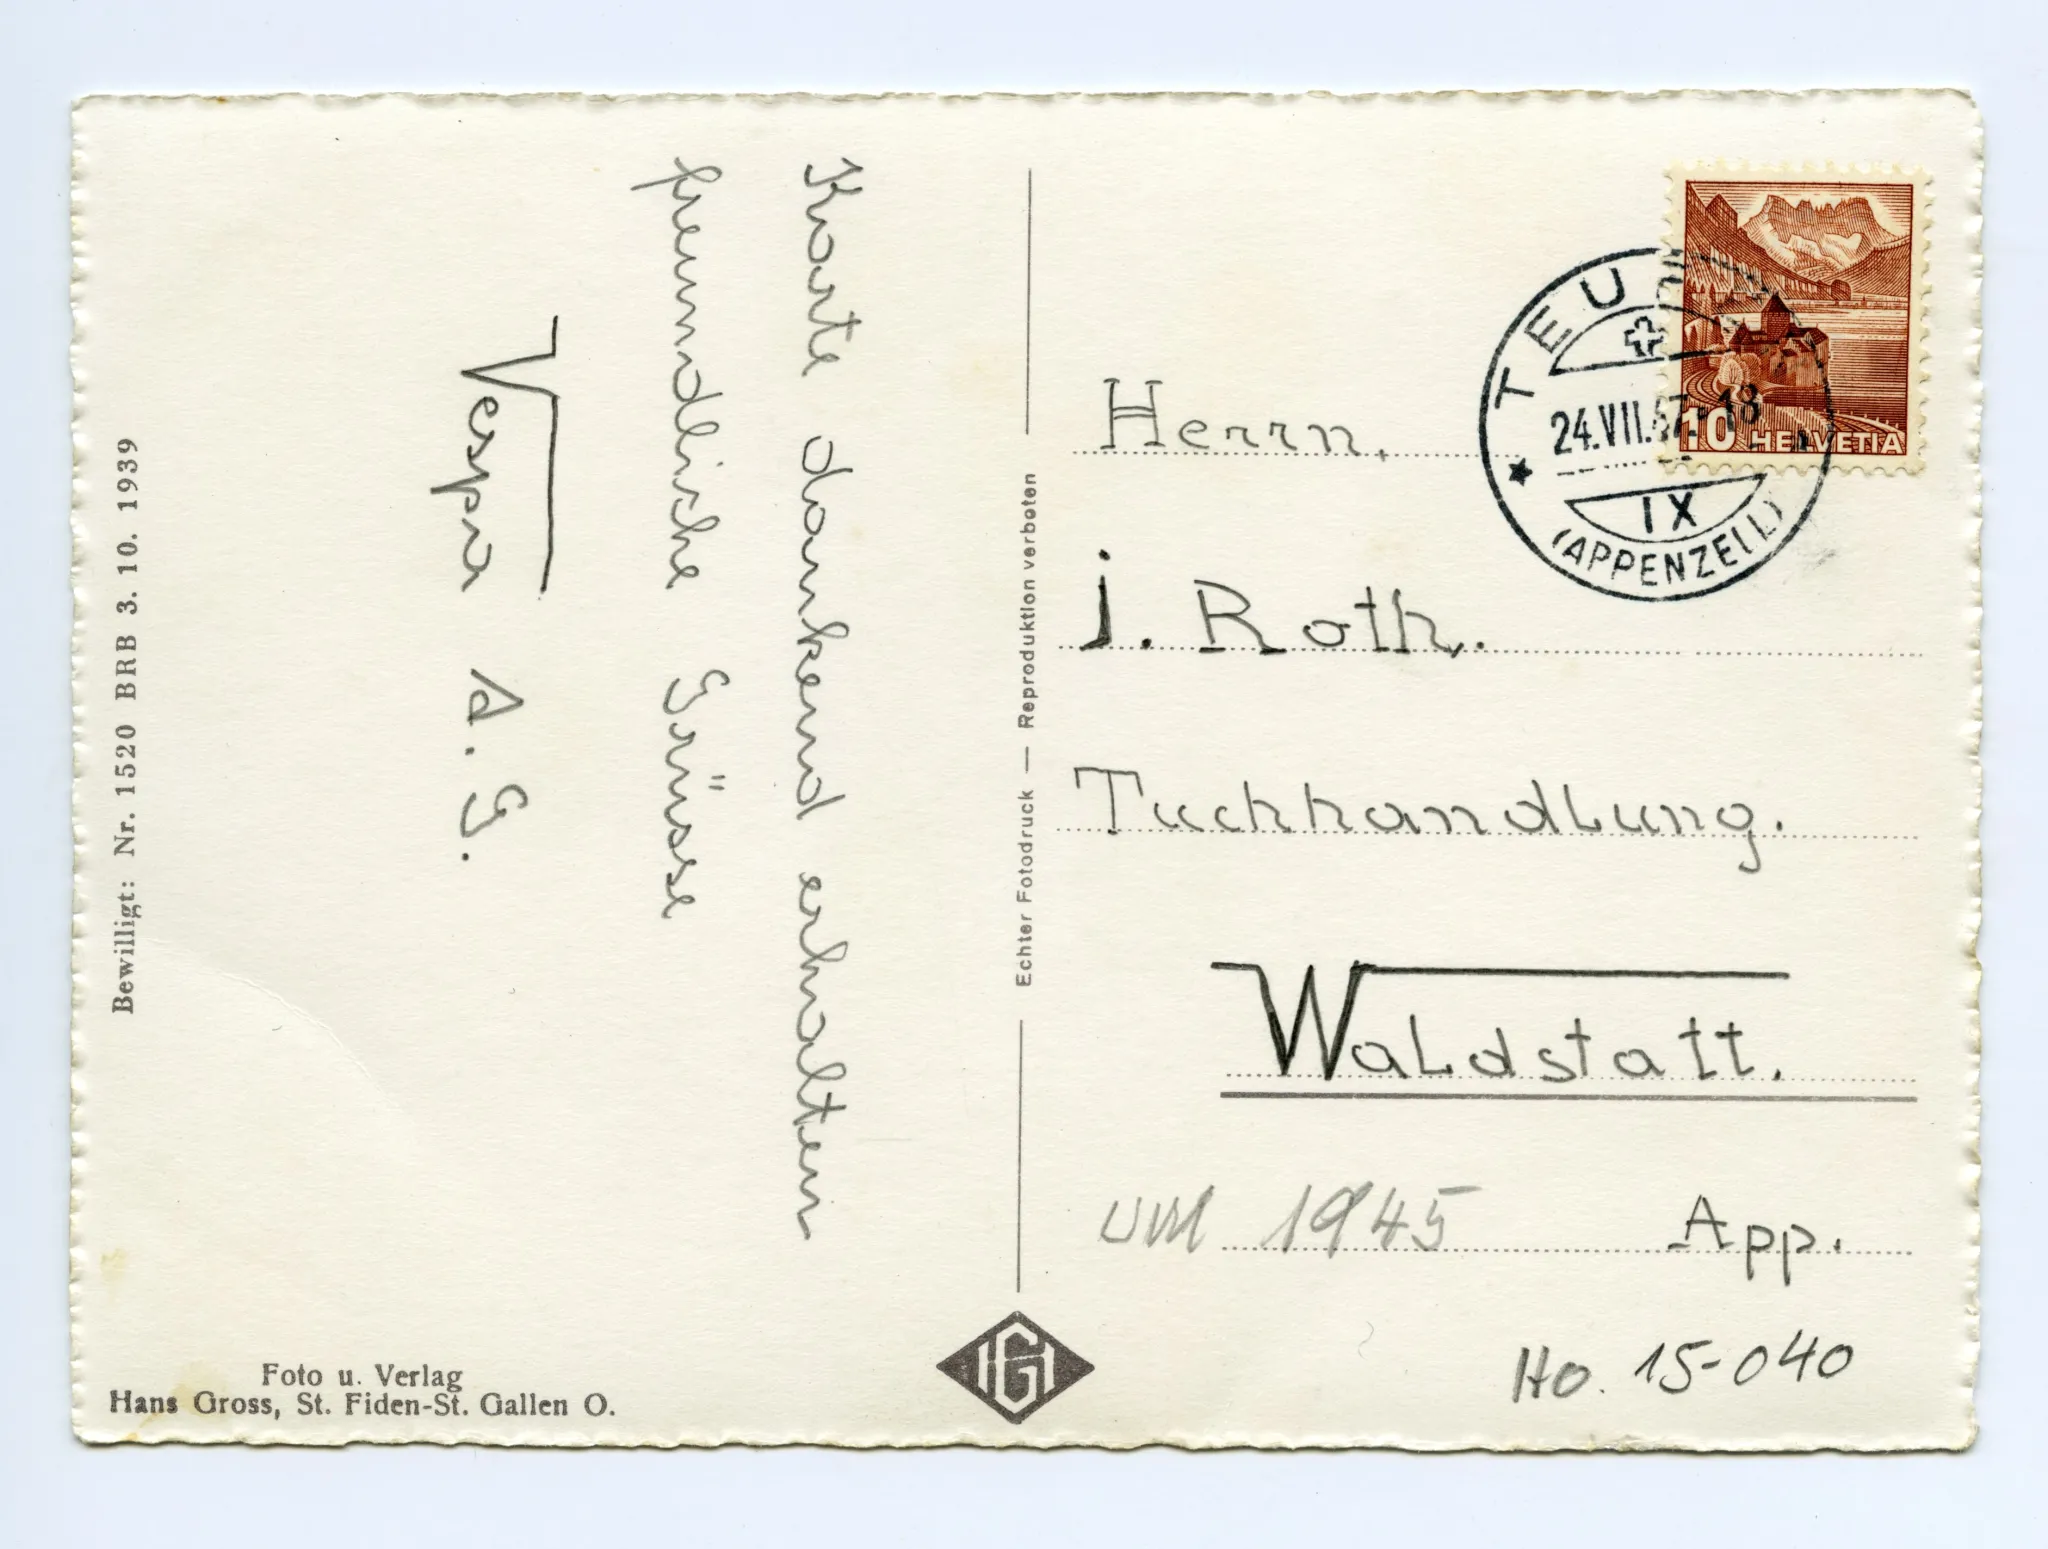 Karte dankend erhalten
freundliche Grüsse
Vespa A.G.
Bewilligt: Nr. 1520 BRB 3. 10. 1939
Foto u. Verlag
Hans Gross, St. Fiden-St. Gallen O.
Echter Fotodruck — Reproduktion verboten
HGH
TEU
24.VII.47.-18
IX
(APPENZELL)
10 HELVETIA
Herrn,
J. Roth,.
Tuchhandlung.
Waldstatt.
App.
um 1945
Ho. 15-040